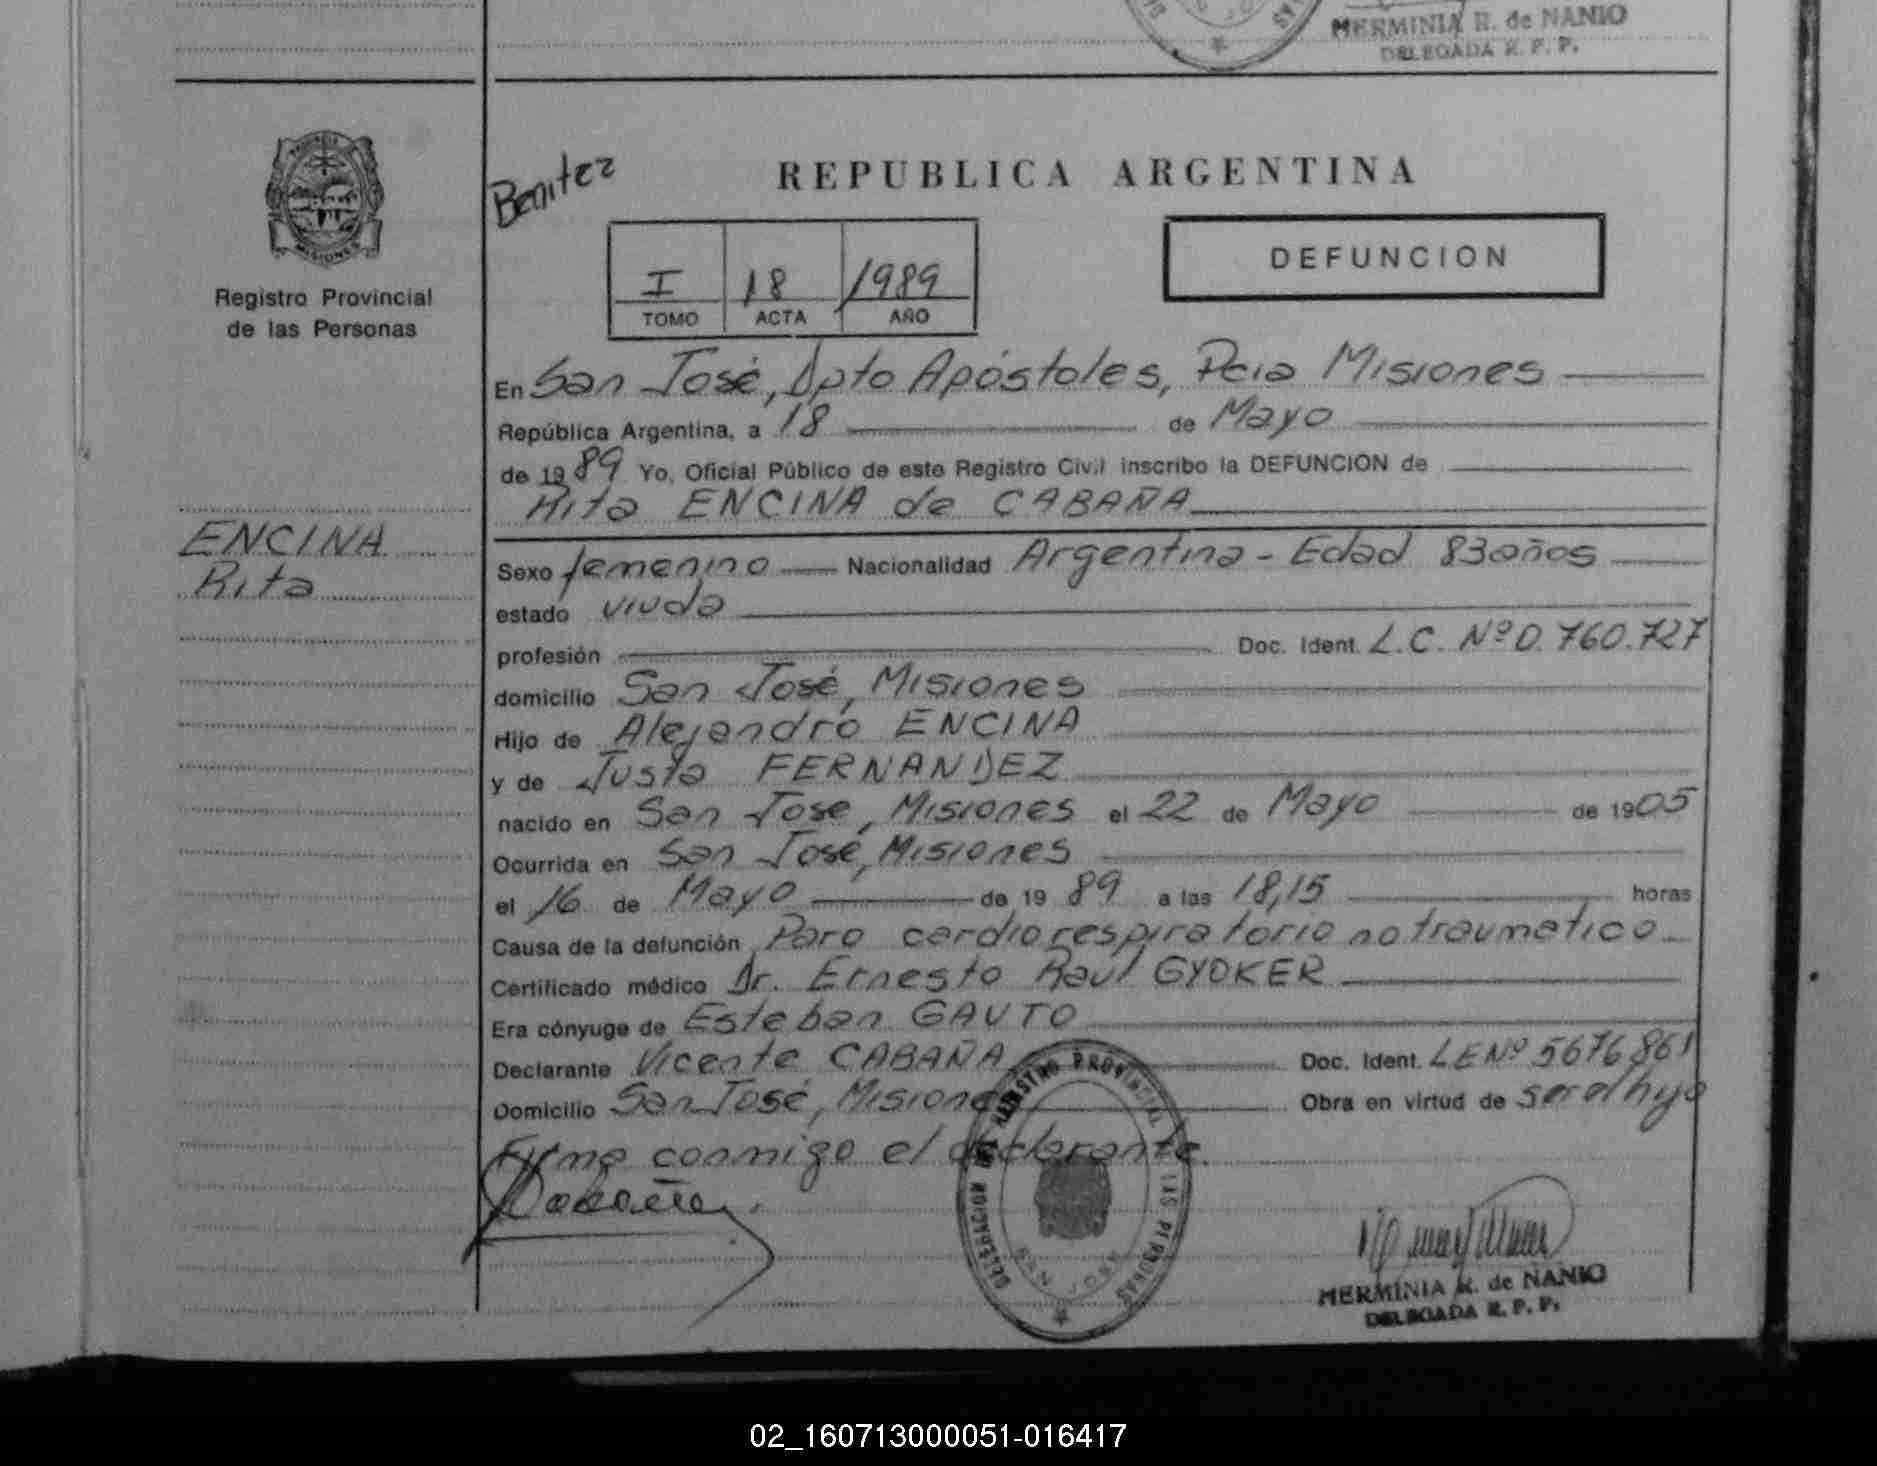 HERMINIA R. de NANIO
DELEGADA R. P. P.
PROVINCIA
MISIONES
Registro Provincial
de las Personas
ENCINA
Rita
Benitez
REPUBLICA ARGENTINA
I 18 1989
TOMO ACTA AÑO
DEFUNCION
En San José, Dpto Apóstoles, Pcia Misiones
República Argentina, a 18 de Mayo
de 1989 Yo, Oficial Público de este Registro Civil inscribo la DEFUNCION de
Rita ENCINA de CABAÑA
Sexo femenino Nacionalidad Argentina - Edad 83 años
estado viuda
profesión Doc. Ident. L.C. Nº 0.760.727
domicilio San José, Misiones
Hijo de Alejandro ENCINA
y de Justa FERNANDEZ
nacido en San Jose, Misiones el 22 de Mayo de 1905
Ocurrida en San José, Misiones
el 16 de Mayo de 1989 a las 18,15 horas
Causa de la defunción Paro cardiorespiratorio no traumatico
Certificado médico Dr. Ernesto Raul GYOKER
Era cónyuge de Esteban GAUTO
Declarante Vicente CABAÑA Doc. Ident. LE Nº 5676861
Domicilio San José, Misiones Obra en virtud de ser el hijo
Firma conmigo el declarante.
Cabaña
DELEGACION DEL REGISTRO PROVINCIAL DE LAS PERSONAS
SAN JOSE
HERMINIA R. de NANIO
DELEGADA R. P. P.
02_160713000051-016417